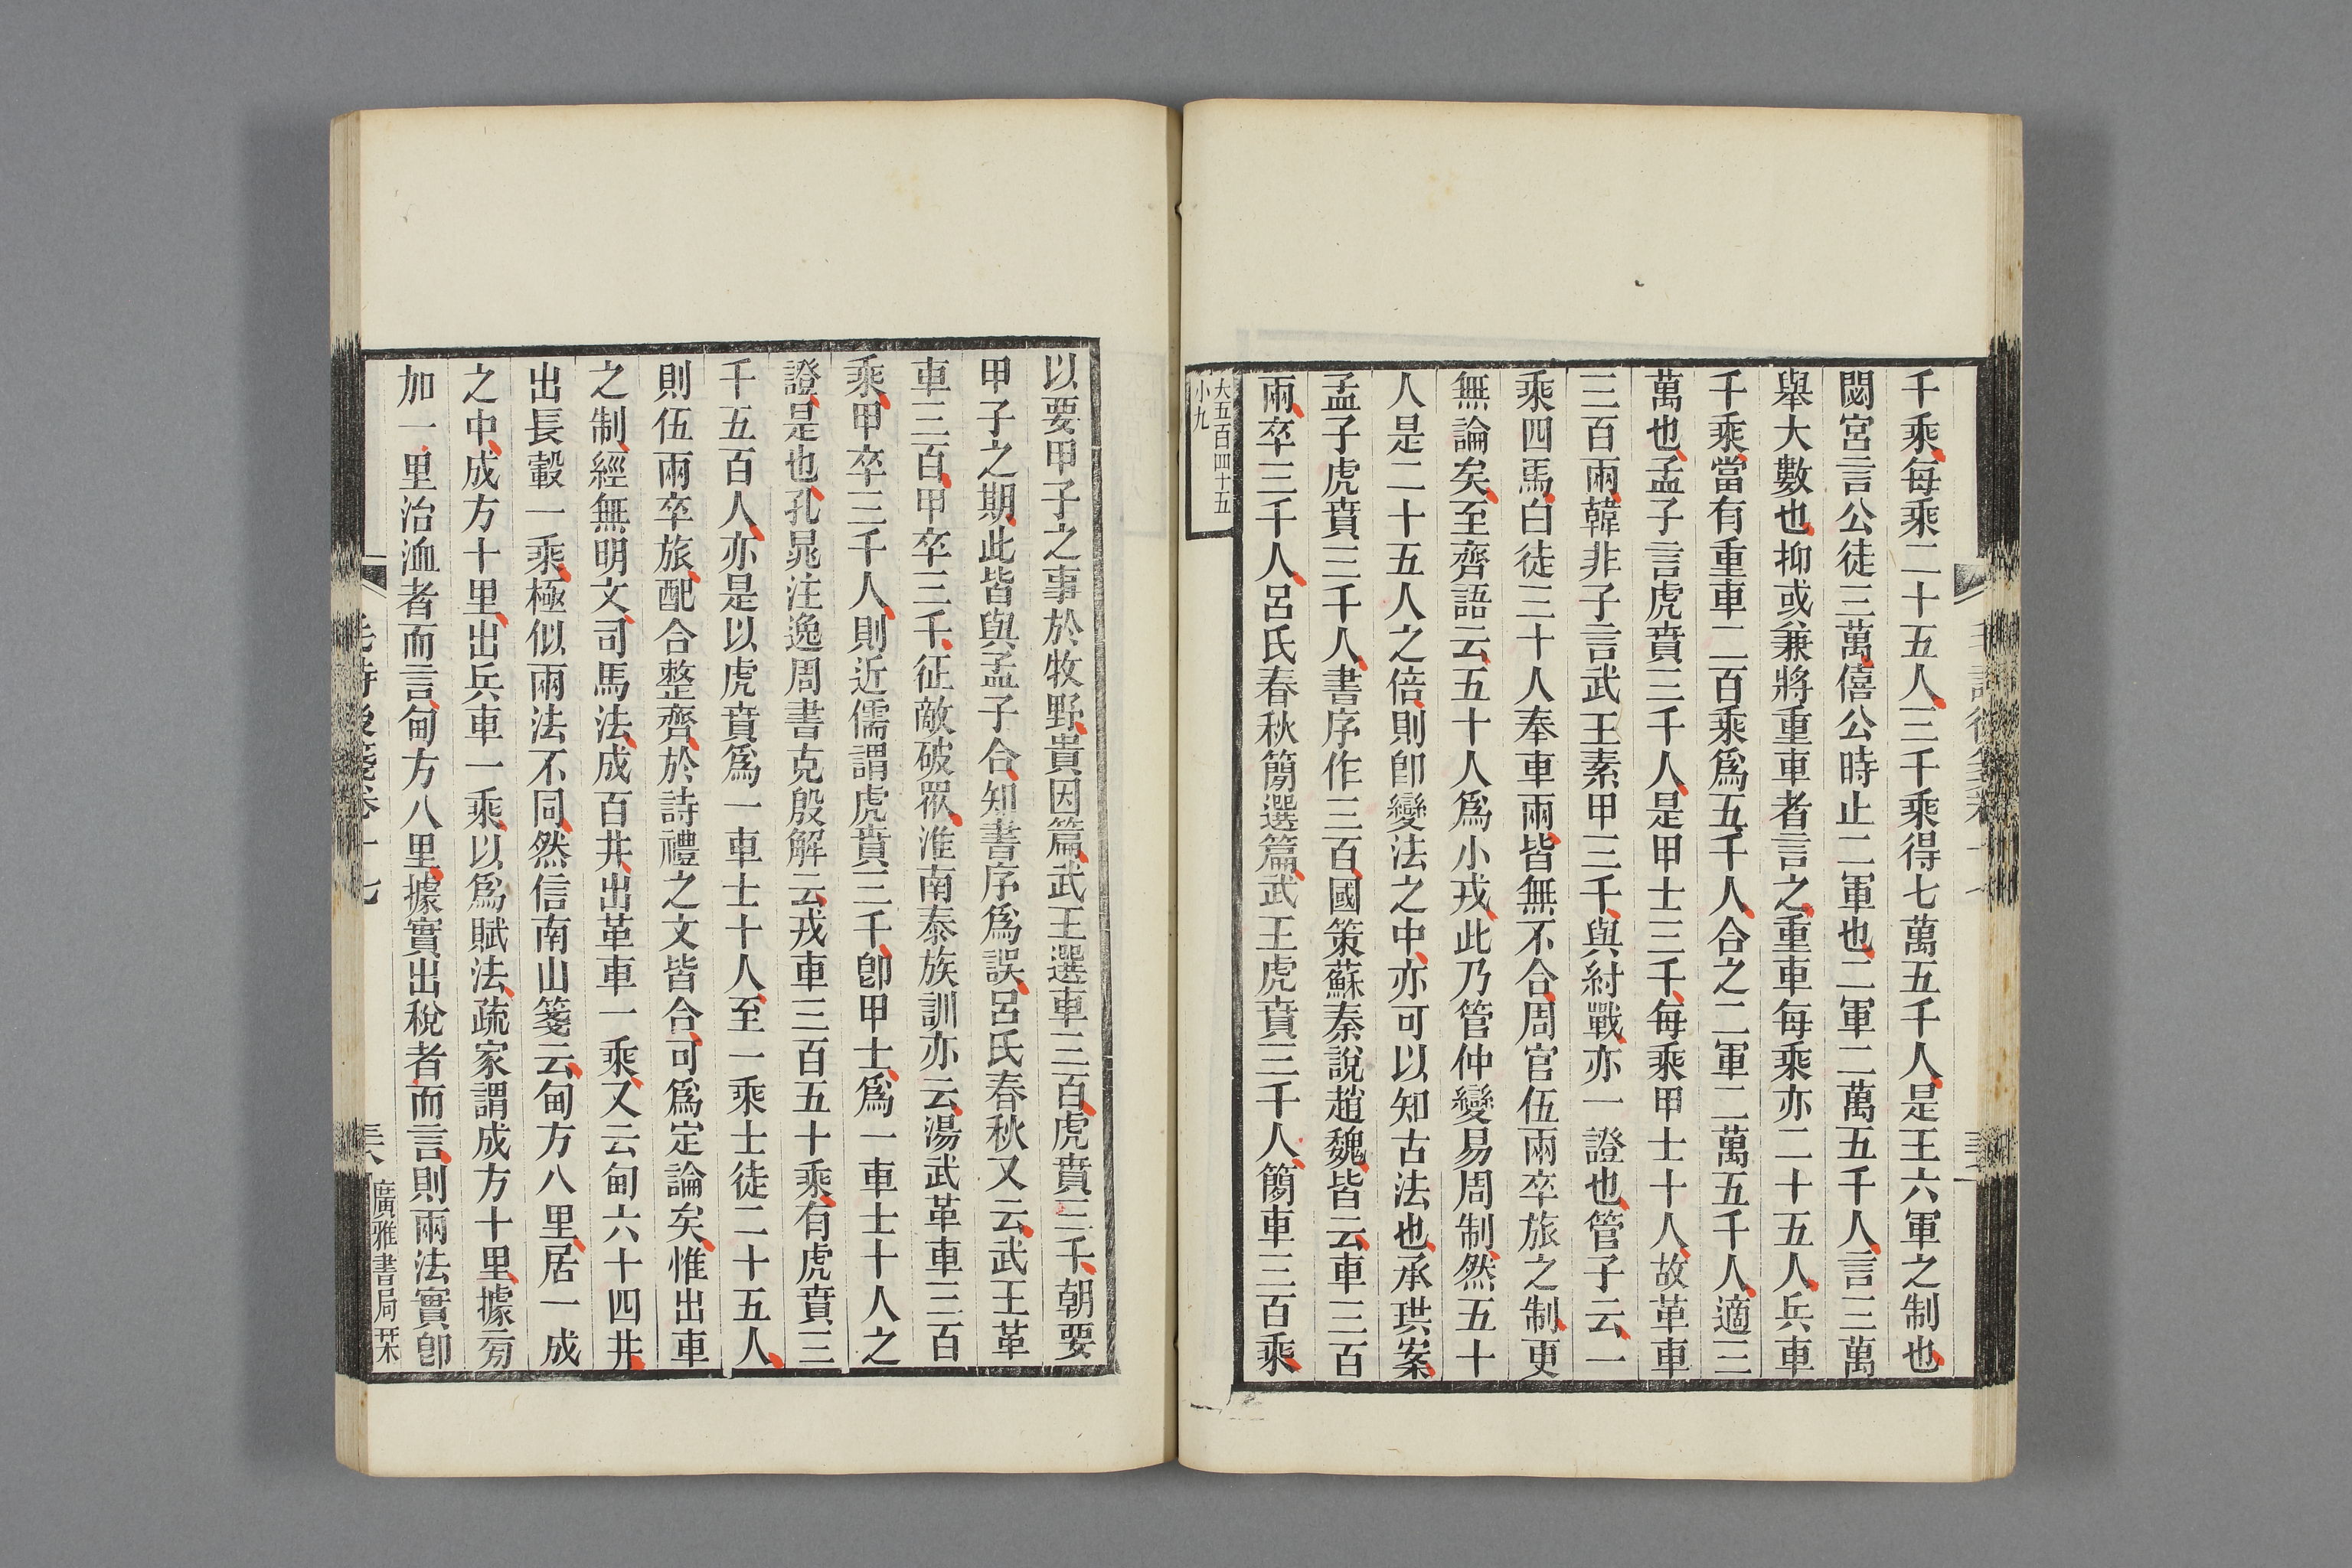 千乘每乘二十五人三千乘得七萬五千人是王六軍之制也
閟宮言公徒三萬僖公時止二軍也二軍二萬五千人言三萬
舉大數也抑或兼將重車者言之重車每乘亦二十五人兵車
千乘當有重車二百乘爲五千人合之二軍二萬五千人適三
萬也孟子言虎賁三千人是甲士三千每乘甲士十人故革車
三百兩韓非子言武王素甲三千與紂戰亦一證也管子云一
乘四馬白徒三十人奉車兩皆無不合周官伍兩卒旅之制更
無論矣至齊語云五十人爲小戎此乃管仲變易周制然五十
人是二十五人之倍則卽變法之中亦可以知古法也承珙案
孟子虎賁三千人書序作三百國策蘇秦說趙魏皆云車三百
兩卒三千人呂氏春秋簡選篇武王虎賁三千人簡車三百乘
大五百四十五
小九
以要甲子之事於牧野貴因篇武王選車三百虎賁三千朝要
甲子之期此皆與孟子合知書序爲誤呂氏春秋又云武王革
車三百甲卒三千征敵破眾淮南泰族訓亦云湯武革車三百
乘甲卒三千人則近儒謂虎賁三千卽甲士爲一車士十人之
證是也孔晁注逸周書克殷解云戎車三百五十乘有虎賁三
千五百人亦是以虎賁爲一車士十人至一乘士徒二十五人
則伍兩卒旅配合整齊於詩禮之文皆合可爲定論矣惟出車
之制經無明文司馬法成百井出革車一乘又云甸六十四井
出長轂一乘極似兩法不同然信南山箋云甸方八里居一成
之中成方十里出兵車一乘以爲賦法疏家謂成方十里據旁
加一里治洫者而言甸方八里據實出稅者而言則兩法實卽
毛詩後箋卷十七
廣雅書局栞